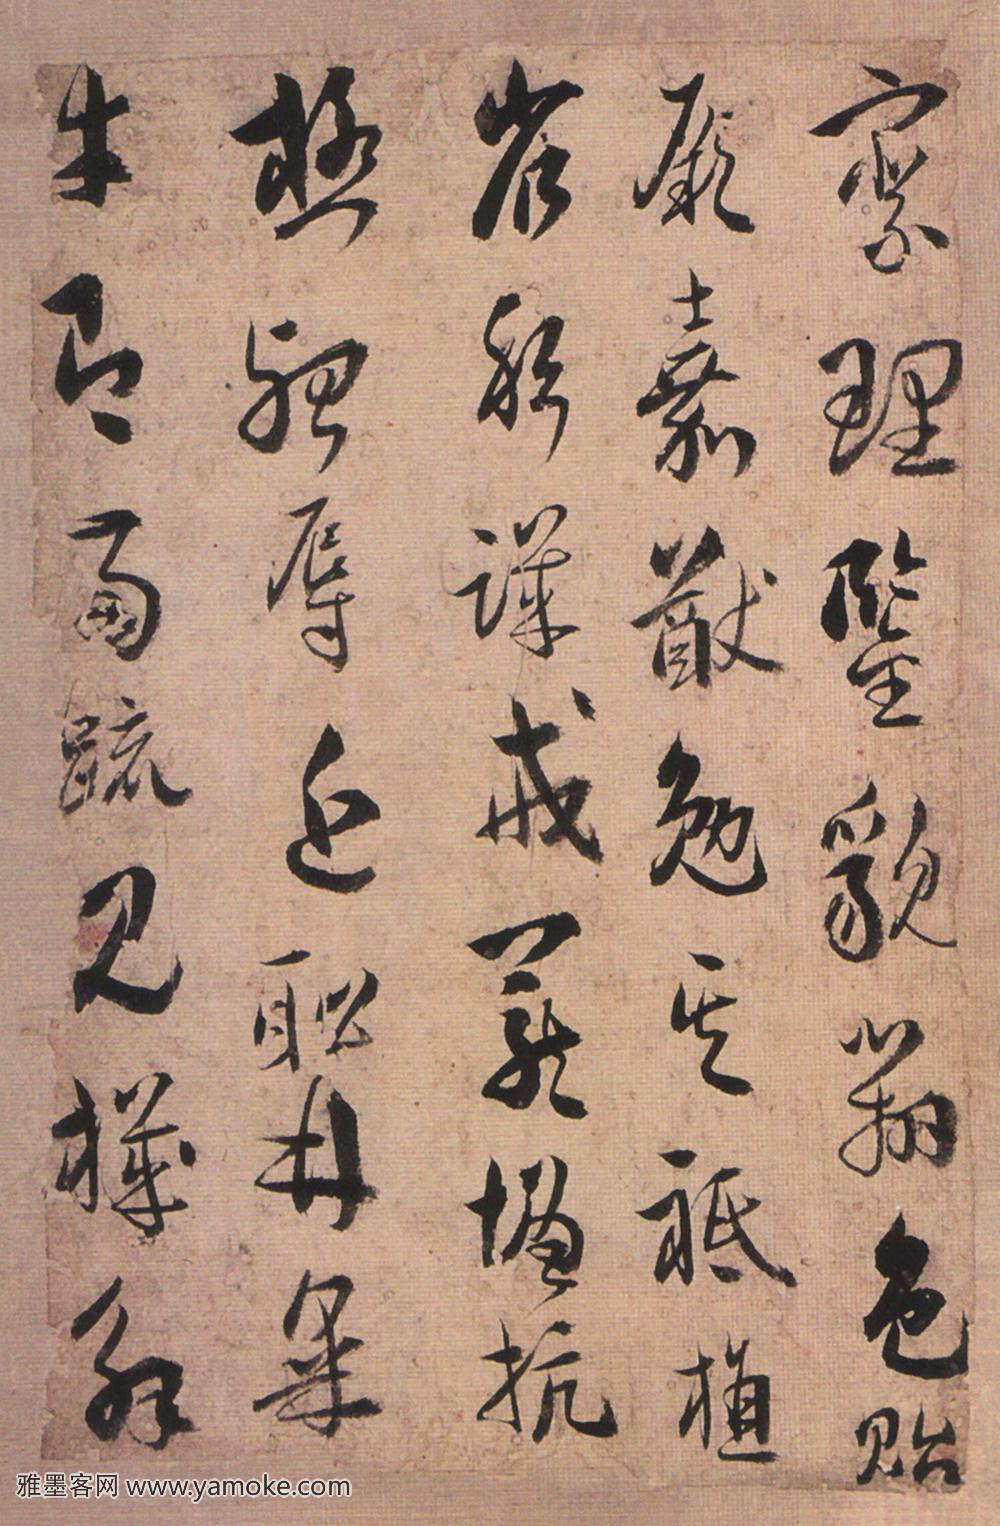 察理鑒貌辯色貽
厥嘉猷勉其祗植
省躬譏戒寵增抗
極殆辱近恥林皋
幸即兩疏見機解
雅墨客网 www.yamoke.com